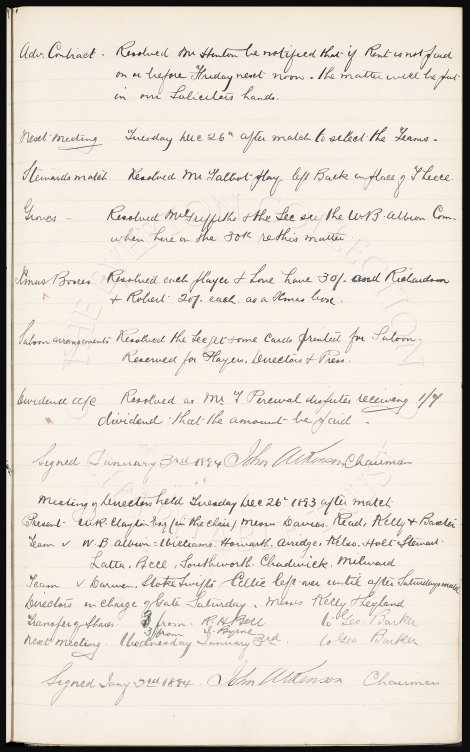 Adv. Contract. Resolved Mr Hinton be notified that if Rent is not paid
on or before Friday next noon, the matter will be put
in our Solicitors hands.
Next Meeting Tuesday Dec 26th after match to select the Teams.
Stewards match Resolved Mr Talbot play left Back in place of
Groves - Resolved Mr Griffiths & the Sec see the W B Albion Com
when here on the 30th re this matter
Xmas Boxes Resolved each player & Love have 30/- and Richardson
& Robert 20/- each as a Xmas box.
Saloon arrangements Resolved the Sec get some Cards printed for Saloon
Reserved for Players, Directors & Press
Dividend a/c Resolved as Mr T Percival disputes receiving 1/7
dividend that the amount be paid.
Signed January 3rd 1894 John Atkinson Chairman
Meeting of Directors held Tuesday Dec 26th 1893 after match
Present Clayton Esq (in the Chair) Messrs Davies, Read, Kelly & Baxter
Team v W. B. Albion: Williams, Howarth, Arridge, Kelso, Holt Stewart
Latta, Bell, Southworth, Chadwick, Milward
Team v Darwen, Stoke Swifts & Celtic left over until after Saturdays match
Directors in charge of Gate Saturday, Messrs Kelly & Leyland
Transfer of Shares 3 from R. H. Bell to Geo. Barker
3 from Byrne to Geo Barker
Next Meeting Wednesday January 3rd.
Signed Jany 3rd 1894 John Atkinson Chairman
THE EVERTON COLLECTION